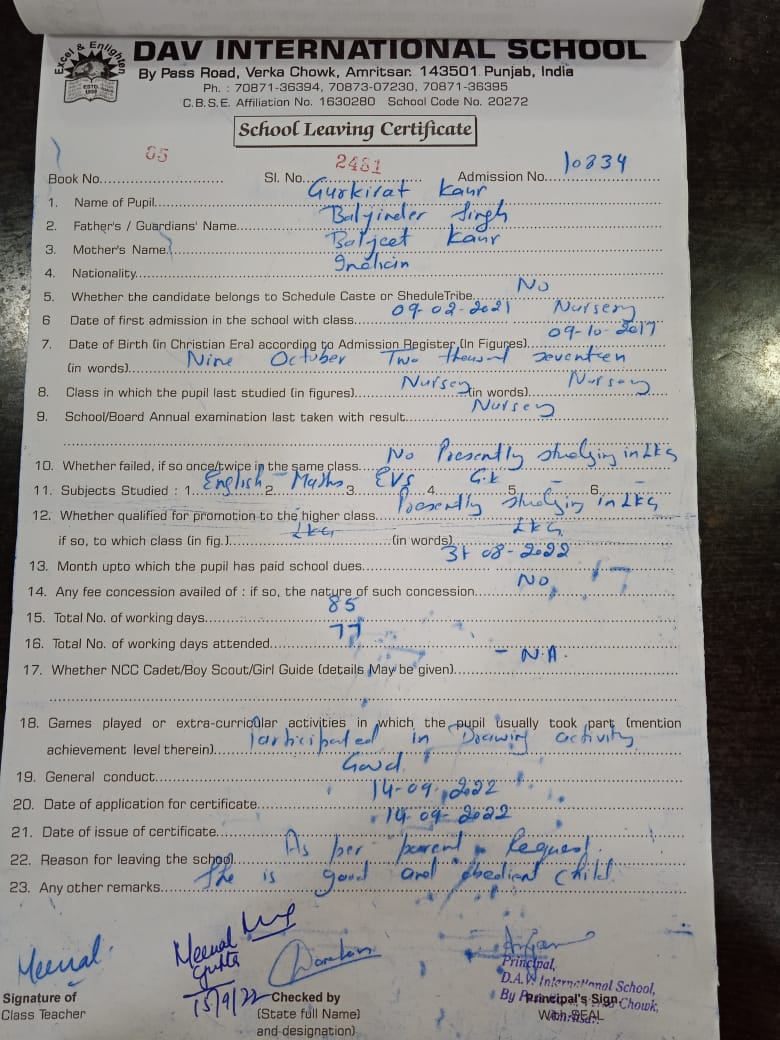 Excel & Enlighten
ESTD.
DAV INTERNATIONAL SCHOOL
By Pass Road, Verka Chowk, Amritsar. 143501 Punjab, India
Ph. : 70871-36394, 70873-07230, 70871-36395
C.B.S.E. Affiliation No. 1630280 School Code No. 20272
School Leaving Certificate
Book No. 65 Sl. No. 2481 Admission No. 10834
1. Name of Pupil Gurkirat Kaur
2. Father's / Guardians' Name Baljinder Singh
3. Mother's Name Baljeet Kaur
4. Nationality Indian
5. Whether the candidate belongs to Schedule Caste or SheduleTribe No
6 Date of first admission in the school with class 09-02-2021 Nursery
7. Date of Birth (in Christian Era) according to Admission Register (In Figures) 09-10-2017
(in words) Nine October Two thousand seventeen
8. Class in which the pupil last studied (in figures) Nursery (in words) Nursery
9. School/Board Annual examination last taken with result Nursery
10. Whether failed, if so once/twice in the same class No Presently studying in LKG
11. Subjects Studied : 1. English 2. Maths 3. EVS 4. G.K 5. – 6. –
12. Whether qualified for promotion to the higher class Presently studying in LKG
if so, to which class (in fig.) LKG (in words) LKG
13. Month upto which the pupil has paid school dues 31-08-2022
14. Any fee concession availed of : if so, the nature of such concession No
15. Total No. of working days 85
16. Total No. of working days attended 77
17. Whether NCC Cadet/Boy Scout/Girl Guide (details May be given) – N.A.
18. Games played or extra-curricular activities in which the pupil usually took part (mention
achievement level therein) Participated in Drawing activity
19. General conduct Good
20. Date of application for certificate 14-09-2022
21. Date of issue of certificate 14-09-2022
22. Reason for leaving the school As per parent Request
23. Any other remarks She is good and obedient child.
Meenal
Meenal
Gupta
15/9/22
Principal,
D.A.V. International School,
By Pass Chowk,
Signature of
Class Teacher
Checked by
(State full Name)
and designation)
Principal's Sign.
With SEAL